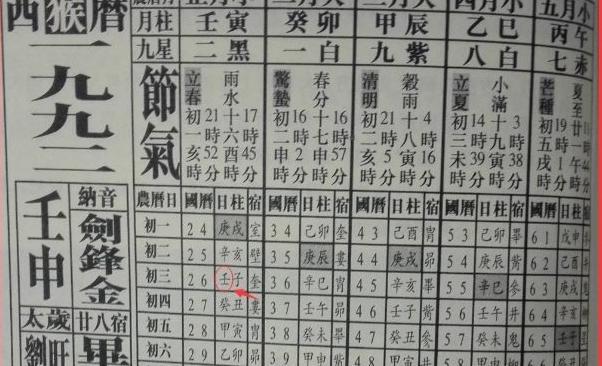 西猴曆
一九九二
壬申
納音
劍鋒金
太歲
廿八宿
劉旺
畢
月柱 壬寅 癸卯 甲辰 乙巳 丙午
九星 二黑 一白 九紫 八白 七赤
節氣
立春 初一亥時 21時52分
雨水 十六酉時 17時45分
驚蟄 初二申時 16時2分
春分 十七申時 16時57分
清明 初二亥時 21時5分
穀雨 十八寅時 4時16分
立夏 初三未時 14時39分
小滿 十九寅時 3時38分
芒種 初五戌時 19時
夏至 廿一
農曆日 國曆 日柱 宿 國曆 日柱 宿 國曆 日柱 宿 國曆 日柱 宿 國曆 日柱
初一 2 4 庚戌 室 3 4 己卯 奎 4 3 己酉 胃 5 3 己卯 畢 6 1 戊申
初二 2 5 辛亥 壁 3 5 庚辰 婁 4 4 庚戌 昴 5 4 庚辰 觜 6 2 己酉
初三 2 6 壬子 奎 3 6 辛巳 胃 4 5 辛亥 畢 5 5 辛巳 參 6 3 庚戌
初四 2 7 癸丑 婁 3 7 壬午 昴 4 6 壬子 觜 5 6 壬午 井 6 4 辛亥
初五 2 8 甲寅 胃 3 8 癸未 畢 4 7 癸丑 參 5 7 癸未 鬼 6 5 壬子
初六 2 9 乙卯 昴 3 9 甲申 觜 4 8 甲寅 井 5 8 甲申 柳 6 6